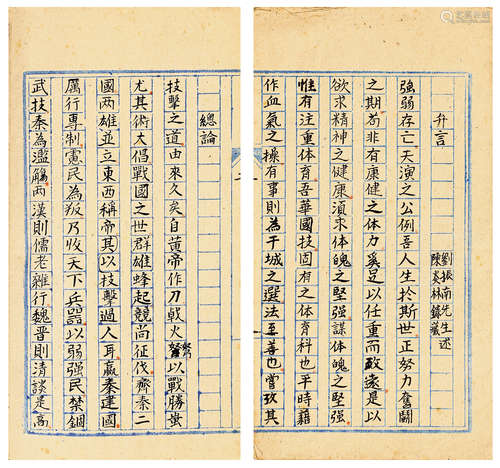 弁言
劉振南先生述
陳炎林錄藏
強弱存亡天演之公例吾人生於斯世正努力奮鬬
之期苟非有康健之体力奚足以任重而致遠是以
欲求精神之健康湏求体魄之堅强謀体魄之堅强
惟有注重体育吾華國技固有之体育科也平時藉
作血氣之操有事則為干城之選法至善也嘗攷其
總論
技擊之道由來久矣自黄帝作刀戟火弩以戰勝蚩
尤其術大倡戰國之世群雄蜂起競尚征伐齊秦二
國两雄並立東西稱帝其以技擊過人耳嬴秦建國
厲行專制慮民為叛乃收天下兵器以弱强民禁錮
武技秦為濫觴两漢則儒老雜行魏晋則清談是高